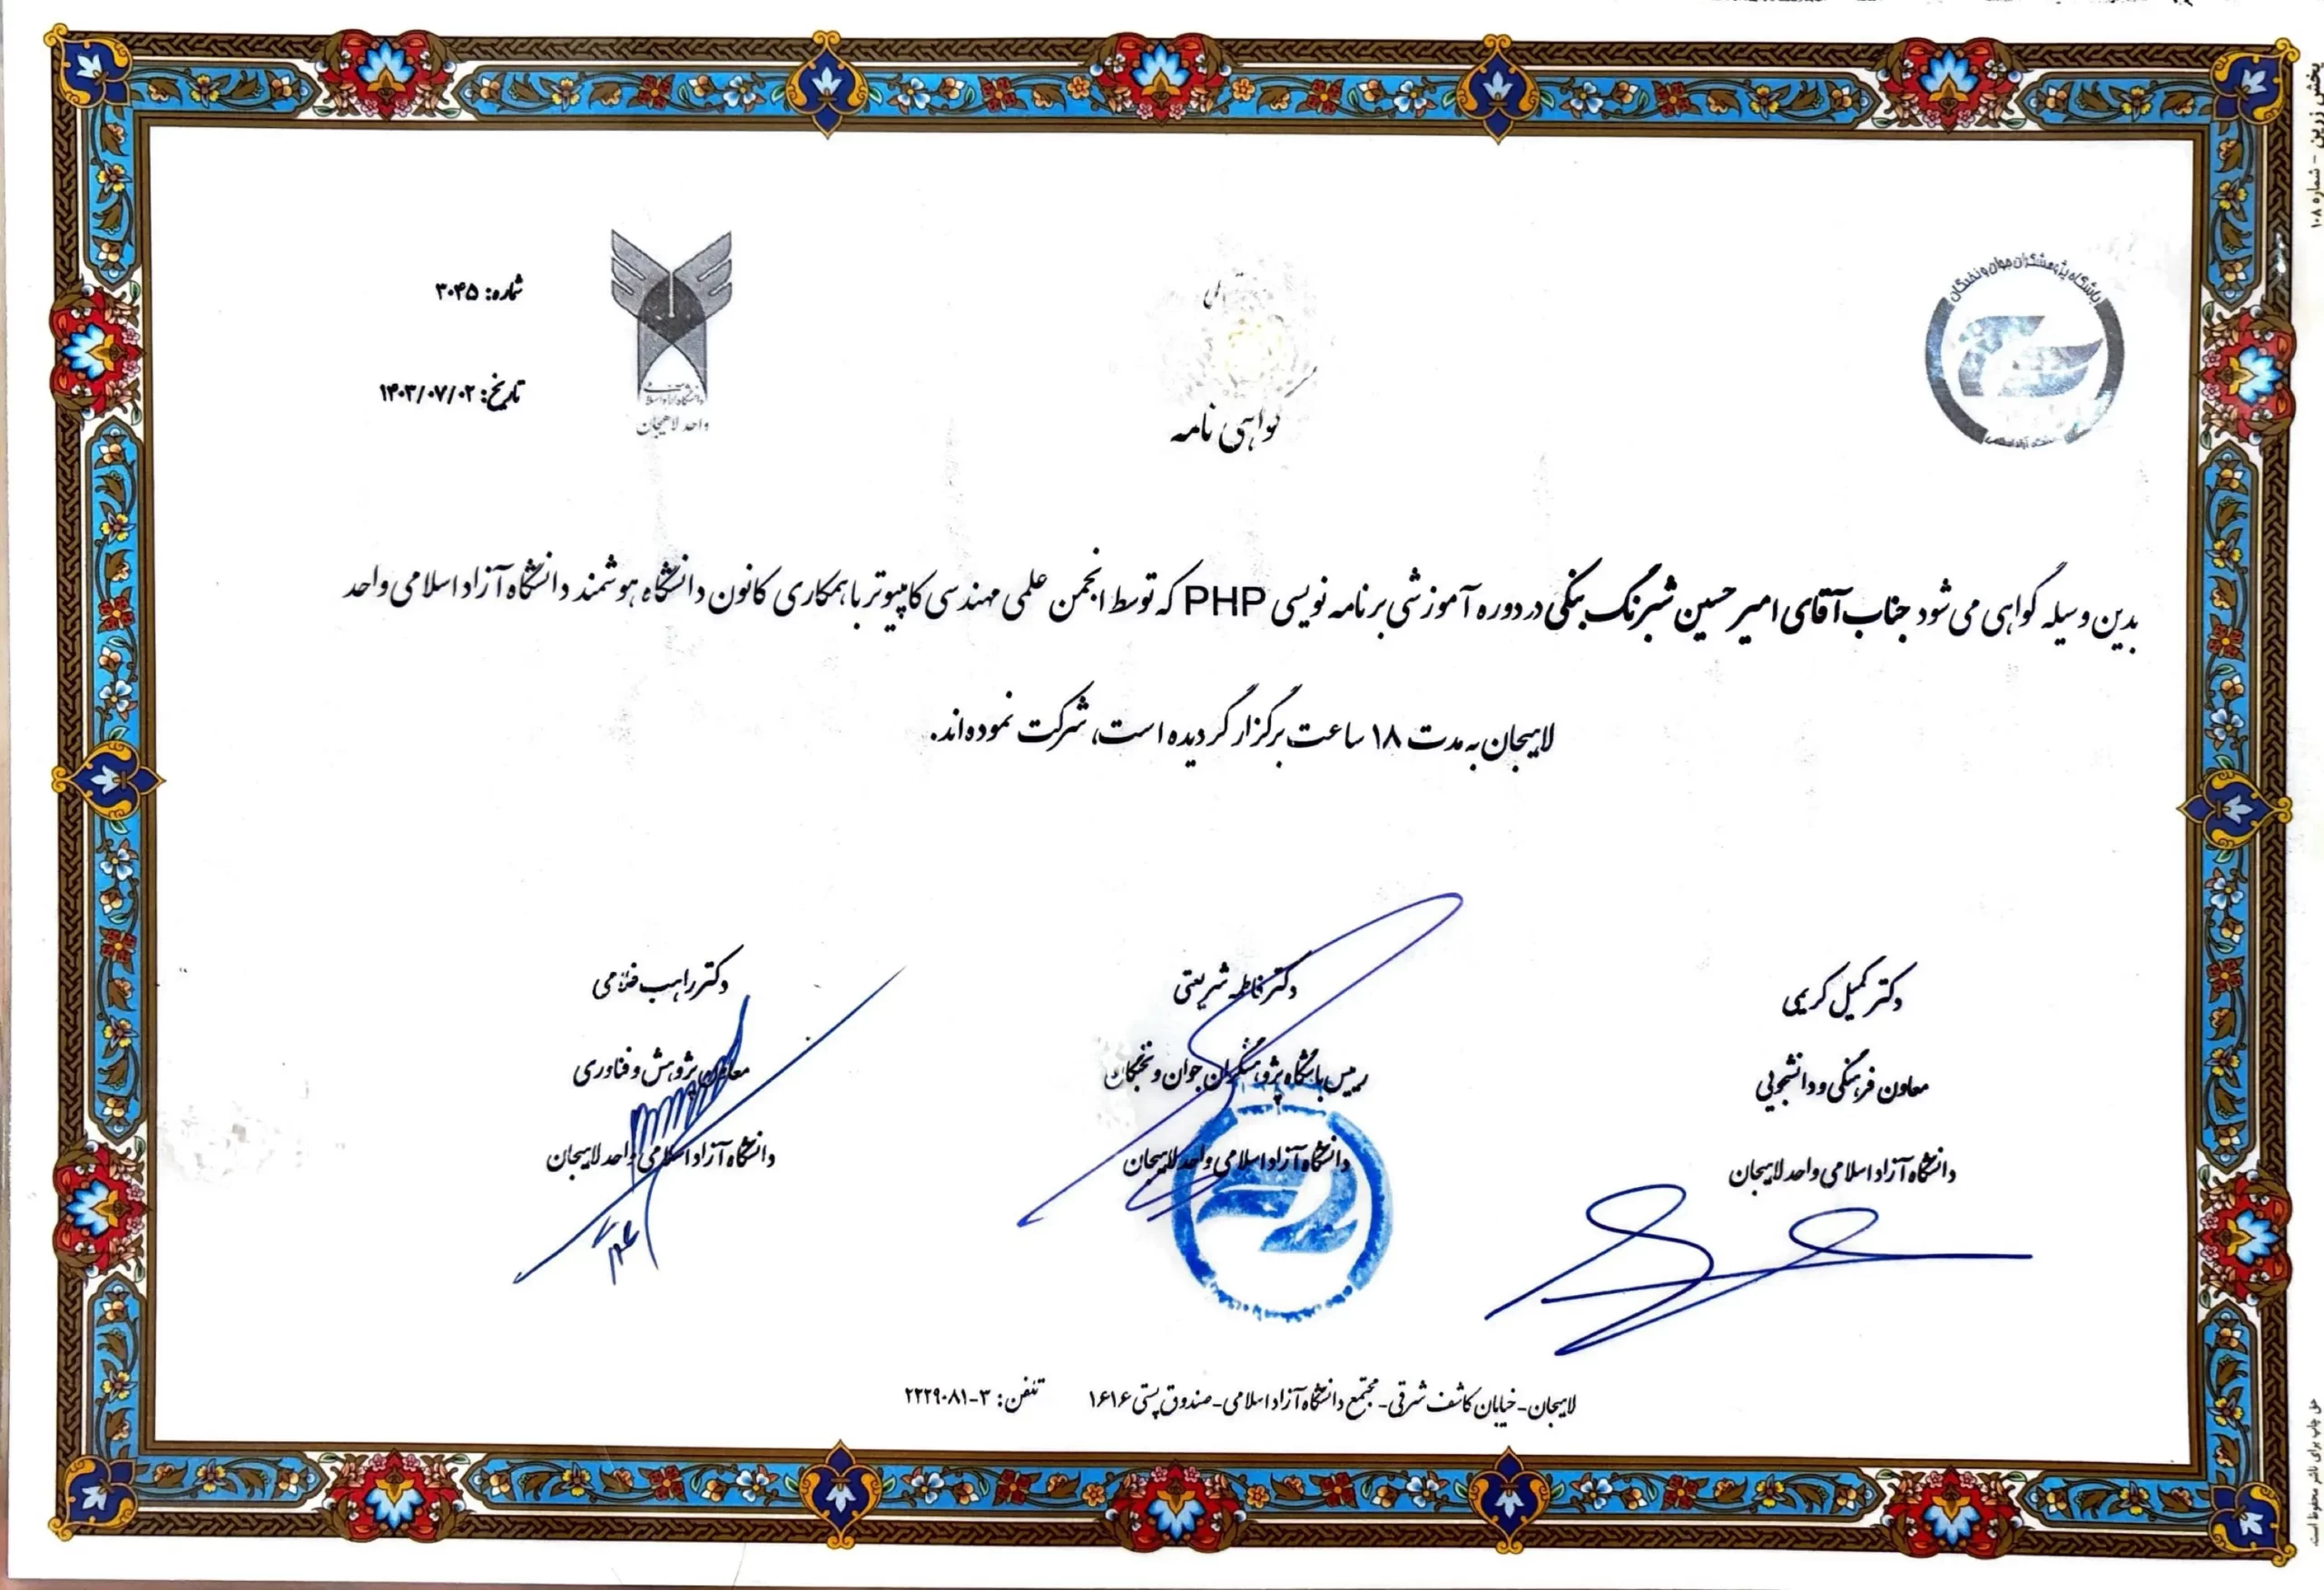 باشگاه پژوهشگران جوان و نخبگان
دانشگاه آزاد اسلامی
واحد لاهیجان
شماره: ۳۰۴۵
تاریخ: ۱۴۰۳/۰۷/۰۲
گواهی نامه
بدین وسیله گواهی می شود جناب آقای امیر حسین شبرنگ بنکی در دوره آموزشی برنامه نویسی PHP که توسط انجمن علمی مهندسی کامپیوتر با همکاری کانون دانشگاه هوشمند دانشگاه آزاد اسلامی واحد
لاهیجان به مدت ۱۸ ساعت برگزار گردیده است، شرکت نموده‌اند.
دکتر کمیل کریمی
معاون فرهنگی و دانشجویی
دانشگاه آزاد اسلامی واحد لاهیجان
دکتر فاطمه شریعتی
رییس باشگاه پژوهشگران جوان و نخبگان
دانشگاه آزاد اسلامی واحد لاهیجان
دکتر راهب غلامی
معاون پژوهش و فناوری
دانشگاه آزاد اسلامی واحد لاهیجان
لاهیجان- خیابان کاشف شرقی- مجتمع دانشگاه آزاد اسلامی- صندوق پستی ۱۶۱۶ تلفن: ۳-۲۲۲۹۰۸۱
پخش زرین - شماره ۱۰۸
حق چاپ برای ناشر محفوظ است.